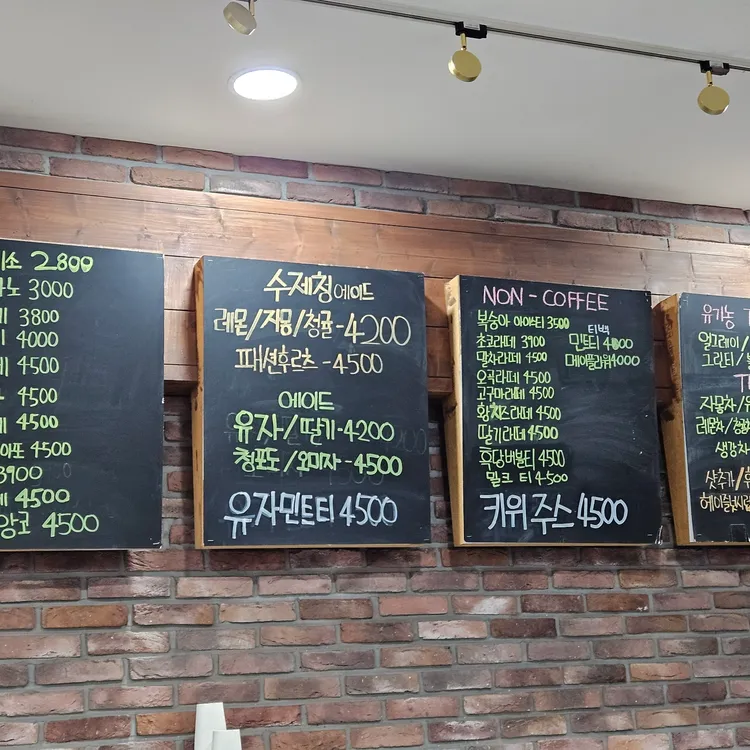 소 2.800
노 3000
3800
4000
4500
4500
4500
아포 4500
3900
4500
앙코 4500
수제청 에이드
레몬/자몽/청귤-4200
패션후르츠-4500
에이드
유자/딸기-4200
청포도/오미자-4500
유자민트티 4500
NON-COFFEE
복숭아 아이스티 3500
초코라떼 3900
말차라떼 4500
오곡라떼 4500
고구마라떼 4500
황치즈라떼 4500
딸기라떼 4500
흑당버블티 4500
밀크 티 4500
티백
민트티 4000
메이플루워4000
키위주스 4500
유기농
얼그레이/
그린티/
자몽차/유
레몬차/청귤
생강차
샷추가/
헤이즐넛시럽